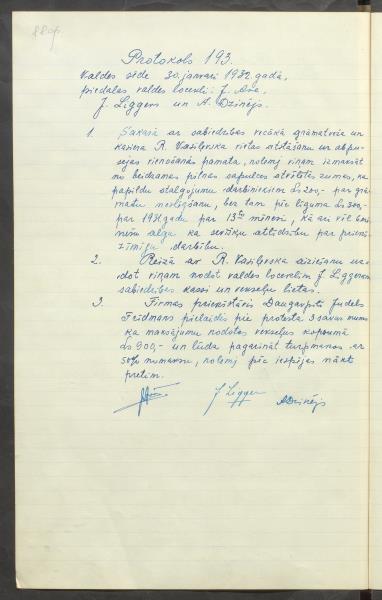 Protokols 193.
Valdes sēde 30. janvarī 1932. gadā,
piedalas valdes locekļi: J. Aše,
J. Liggers un A. Dzinējs.
1. Sakarā ar sabiedrības vecākā grāmatveža un
kasiera R. Vasiļevska vietas atstāšanu un abpu-
sējas vienošanās pamata, nolemj viņam izmaksāt
no beidzamas pilnas sapulces atvēlētās sumas, kā
papildu atalgojumu darbiniekiem Ls 200,- par grā-
matu noslēgšanu, bez tam pēc līguma Ls 300,-
par 1931 gadu par 13to mēnesi, kā arī vēl
mēnešu algu kā sevišķu atlīdzību par priekš-
zīmīgu darbību.
2. Reizē ar R. Vasiļevska aiziešanu uz-
dot viņam nodot valdes loceklim J. Liggeram
sabiedrības kasi un vekseļu lietas.
3. Firmas priekšstāvis Daugavpilī Judels
Fridmans pielaidis pie protesta 3 savus mums
kā maksājumu nodotos vekseļus kopsumā
Ls 900,- un lūdz pagarināt turpmākos ar
50% nomaksu, nolemj pēc iespējas nākt
pretim.
J Ligger
ADzinējs